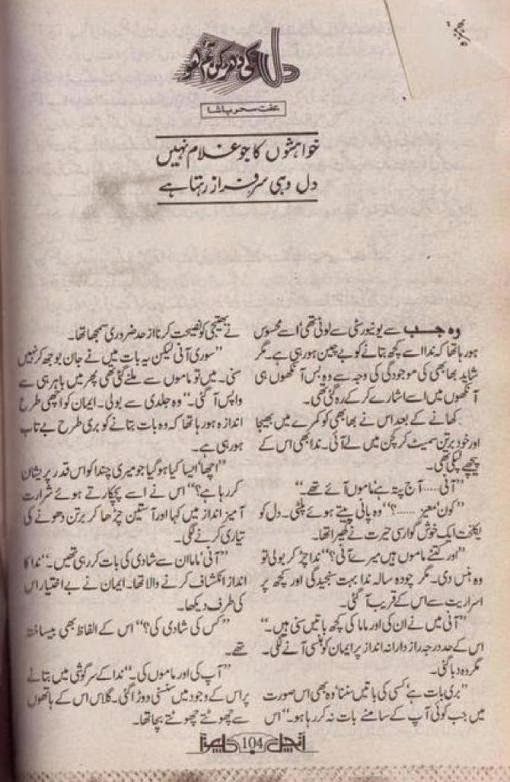 دل کی دھڑکن تم ہو
عفت سحر پاشا
خواہشوں کا جو غلام نہیں
دل وہی سرفراز رہتا ہے
وہ جب سے یونیورسٹی سے لوٹی تھی اُسے محسوس
ہورہا تھا کہ ندا اسے کچھ بتانے کو بے چین ہورہی ہے۔ مگر
شاید بھابھی کی موجودگی کی وجہ سے وہ بس آنکھوں ہی
آنکھوں میں اسے اشارے کرکے رہ گئی تھی۔
کھانے کے بعد اس نے بھابی کو کمرے میں بھیجا
اور خود برتن سمیٹ کر کچن میں لے آئی۔ ندا بھی اس کے
پیچھے لپکی تھی۔
”آنی..... آج پتہ ہے ماموں آئے تھے۔“
”کون معیز.....؟“ وہ پانی پیتے ہوئے پلٹی۔ دل کو
یکلخت ایک خوش گوار سی حیرت نے گھیرا تھا۔
”اور کتنے ماموں ہیں میرے آنی؟“ ندا چڑ کر بولی تو
وہ ہنس دی۔ مگر چودہ سالہ ندا بہت سنجیدگی اور کچھ پر
اسراریت سے اس کے قریب آگئی۔
”آنی میں نے ان کی اور ماما کی کچھ باتیں سنی ہیں۔“
اس کے حد درجہ رازدارانہ انداز پر ایمان کو ہنسی آنے لگی۔
مگر وہ دبا گئی۔
”بری بات ہے‘ کسی کی باتیں سننا‘ وہ بھی اس صورت
میں جب کوئی آپ کے سامنے بات نہ کررہا ہو۔“ اس
نے بھتیجی کو نصیحت کرنا ازحد ضروری سمجھا تھا۔
”سوری آنی لیکن یہ بات میں نے جان بوجھ کر نہیں
سنی۔ میں تو ماموں سے ملنے گئی تھی پھر میں باہر ہی سے
واپس آگئی۔“ وہ جلدی سے بولی۔ ایمان کو اچھی طرح
اندازہ ہورہا تھا کہ وہ بات بتانے کو بری طرح بے تاب
ہورہی ہے۔
”اچھا‘ ایسا کیا ہوگیا جو میری چندا کو اس قدر پریشان
کررہا ہے؟“ اس نے اسے پچکارتے ہوئے شرارت
آمیز انداز میں کہا اور آستین چڑھا کر برتن دھونے کی
تیاری کرنے لگی۔
”آنی‘ ماما ان سے شادی کی بات کررہی تھیں۔“ ندا کا
انداز انکشاف کرنے والا تھا۔ ایمان نے بے اختیار اس
کی طرف دیکھا۔
”کس کی شادی کی؟“ اس کے الفاظ بھی بیساختہ
تھے۔
”آپ کی اور ماموں کی۔“ ندا کے سرگوشی میں بتانے
پر اس کے وجود میں سنسنی دوڑا گئی۔ گلاس اس کے ہاتھوں
سے چھوٹتے چھوٹتے بچا تھا۔
آنچل 104